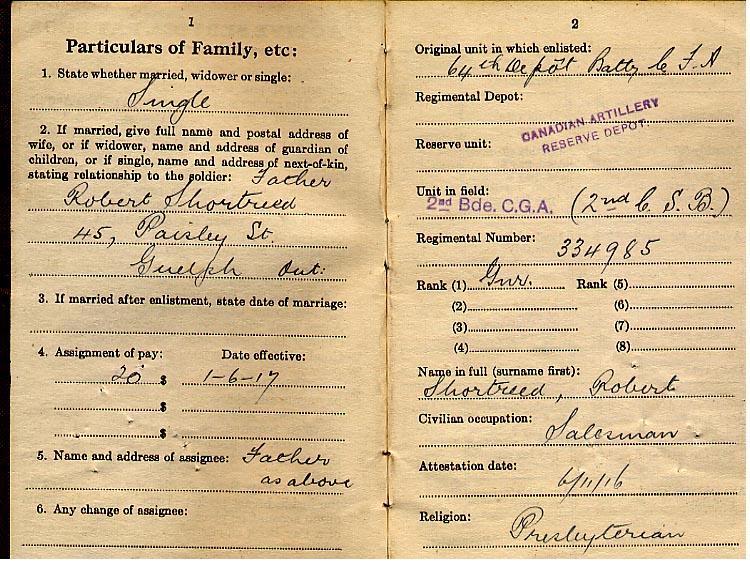 1
Particulars of Family, etc:
1. State whether married, widower or single:
Single
2. If married, give full name and postal address of
wife, or if widower, name and address of guardian of
children, or if single, name and address of next-of-kin,
stating relationship to the soldier: Father
Robert Shortreed
45, Paisley St.
Guelph Ont:
3. If married after enlistment, state date of marriage:
4. Assignment of pay: Date effective:
20 $ 1-6-17
$
$
5. Name and address of assignee: Father
as above
6. Any change of assignee:
2
Original unit in which enlisted:
64th Depôt Batty C.F.A
Regimental Depot:
CANADIAN ARTILLERY
RESERVE DEPOT.
Reserve unit:
Unit in field:
2nd Bde. C.G.A. (2nd C. S. B.)
Regimental Number:
334985
Rank (1) Gnr. Rank (5)
(2) (6)
(3) (7)
(4) (8)
Name in full (surname first):
Shortreed, Robert
Civilian occupation:
Salesman
Attestation date:
6/11/16
Religion:
Presbyterian